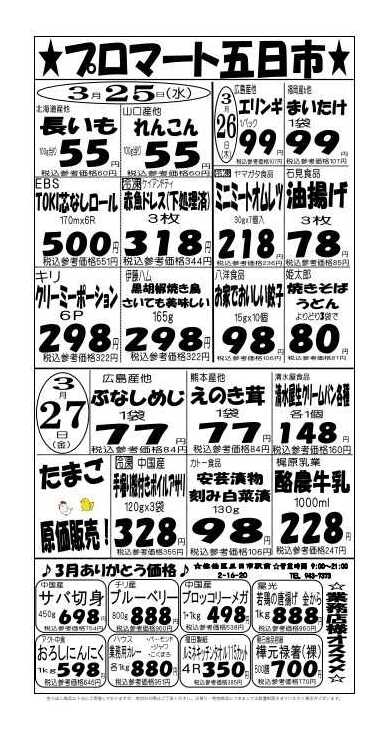 ★プロマート五日市★
3月25日(水)
北海道産他
長いも
100g当り
55円
税込参考価格60円
山口産他
れんこん
100g当り
55円
税込参考価格60円
3月26日(木)
広島産他
エリンギ
1パック
99円
税込参考価格107円
福岡産他
まいたけ
1袋
99円
税込参考価格107円
EBS
TOKI芯なしロール
170m×6R
500円
税込参考価格551円
冷凍 ケイアンドティ
赤魚ドレス(下処理済)
3枚
318円
税込参考価格344円
ヤマガタ食品
ミニミートオムレツ
30g×7個入
218円
税込参考価格236円
石見食品
油揚げ
3枚
78円
税込参考価格85円
キリ
クリーミーポーション
6P
298円
税込参考価格322円
伊藤ハム
黒胡椒焼き鳥
さいても美味しい
165g
298円
税込参考価格322円
八洋食品
お家でおいしい餃子
15g×10個
98円
税込参考価格106円
姫太郎
焼きそば
うどん
よりどり3袋で
80円
税込参考価格87円
3月27日(金)
広島産他
ぶなしめじ
1袋
77円
税込参考価格84円
熊本産他
えのき茸
1袋
77円
税込参考価格84円
清水屋食品
清水屋生クリームパン各種
各1個
148円
税込参考価格160円
たまご
原価販売!
冷凍 中国産
手堀り殻付きボイルアサリ
120g×3袋
328円
税込参考価格355円
カトー食品
安芸漬物
刻み白菜漬
130g
98円
税込参考価格106円
梶原乳業
酪農牛乳
1000ml
228円
税込参考価格247円
♪3月ありがとう価格♪
★営業時間 9:00~21:00
2-16-20 TEL 943-7373
中国産
サバ切身
450g 698円
税込参考価格754円
チリ産
ブルーベリー
800g 888円
税込参考価格960円
中国産
ブロッコリーメガ
1+1kg 498円
税込参考価格538円
星光
若鶏の唐揚げ 釜から
1kg 888円
税込参考価格960円
アクト中食
おろしにんにく
1kg 598円
税込参考価格646円
ハウス
業務用カレー
・バーモンド
・ジャワ
・こくまろ
各1kg 880円
税込参考価格951円
福田製紙
ルミネキッチンタオル115カット
4R 350円
税込参考価格385円
朝日商品容器
樺元禄箸(裸)
100膳 700円
税込参考価格770円
☆業務店様オススメ☆